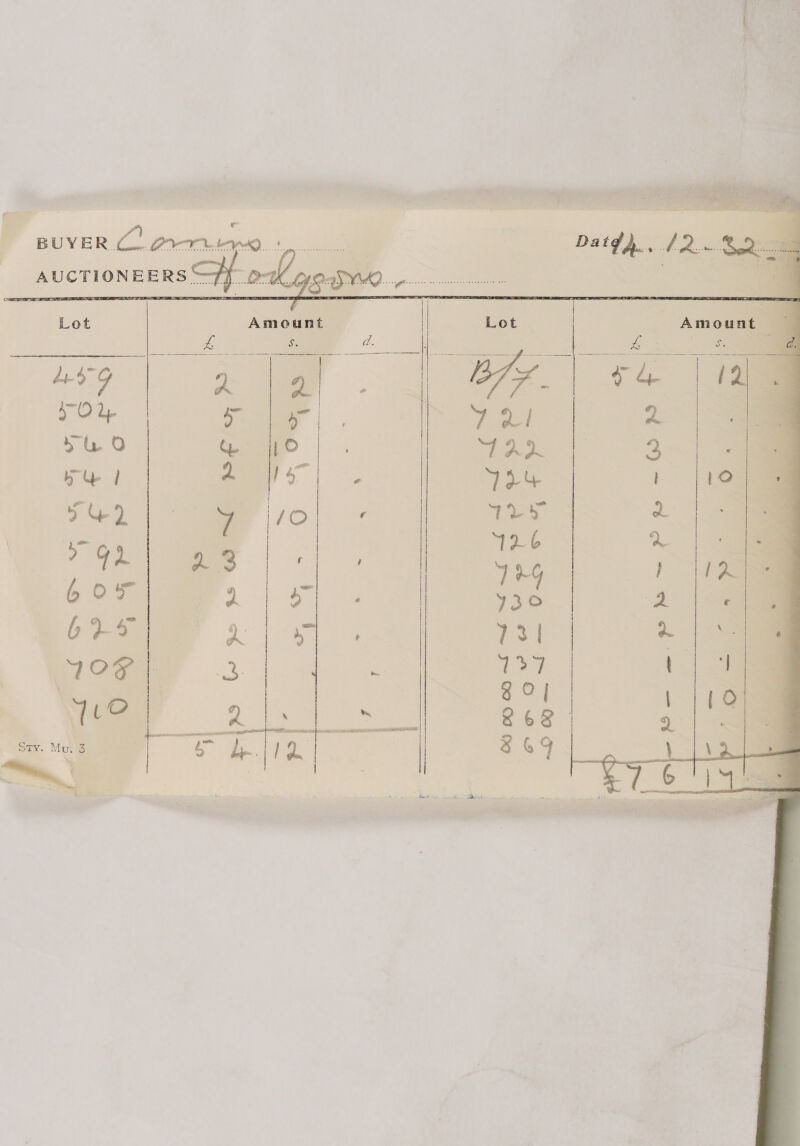 BUYER Comins.
Date 4. 12. 32
AUCTIONEERS Hodgsons
Lot Amount Lot Amount
£ s. d. £ s. d.
459 2 2 - B/F. 54 12 .
504 5 5 . 721 2 . .
540 4 10 . 722 3 . .
541 2 15 - 724 1 10 .
542 7 10 - 725 2 . .
592 23 - - 726 2 . .
605 2 5 - 729 1 12 .
625 2 5 - 730 2 - -
708 3 - - 731 2 - .
710 2 - - 737 1 1
801 1 10
868 2 .
Sty. Mu. 3 54. 12 869 1 12 .
£76 17 - .